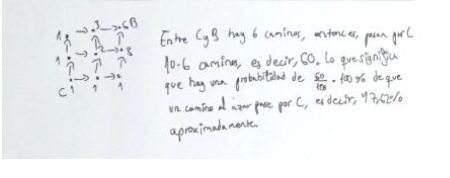 1 → 3 → 6B
1 → 2 → 3
C 1 1 1
Entre C y B hay 6 caminos, entonces, pasan por C
10·6 caminos, es decir, 60. Lo que significa
que hay una probabilidad de 60/126 · 100% de que
un camino al azar pase por C, es decir, 47,62%
aproximadamente.